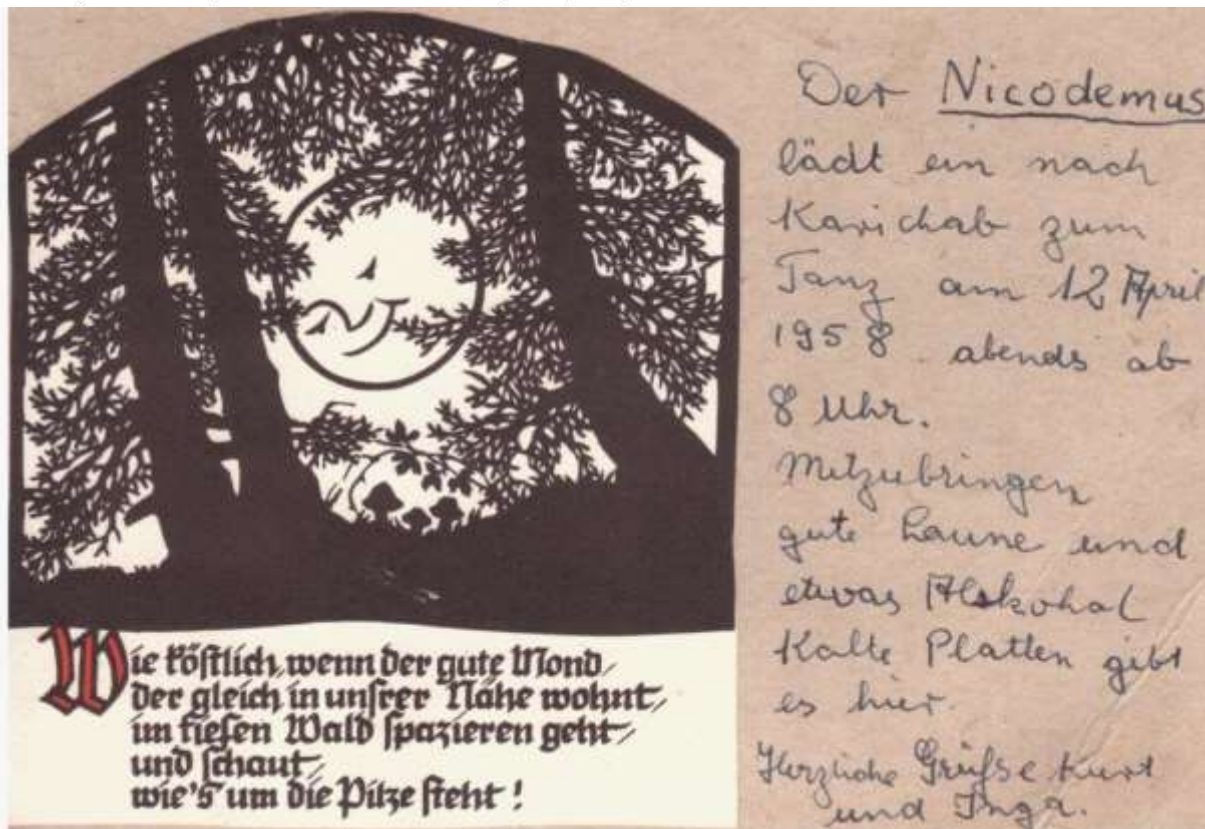 Wie köstlich, wenn der gute Mond,
der gleich in unsrer Nähe wohnt,
im tiefen Wald spazieren geht,
und schaut,
wie's um die Pilze steht!
Der Nicodemus
lädt ein nach
Karichab zum
Tanz am 12 April
1958 abends ab
8 Uhr.
Mitzubringen
gute Laune und
etwas Alkohol
Kalte Platten gibt
es hier.
Herzliche Grüße Kurt
und Inga.